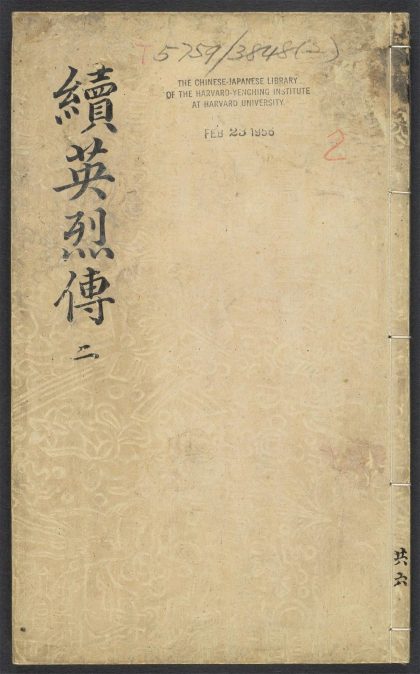 T5759/3848(2)
THE CHINESE-JAPANESE LIBRARY
OF THE HARVARD-YENCHING INSTITUTE
AT HARVARD UNIVERSITY
FEB 23 1956
2
續英烈傳 二
共六